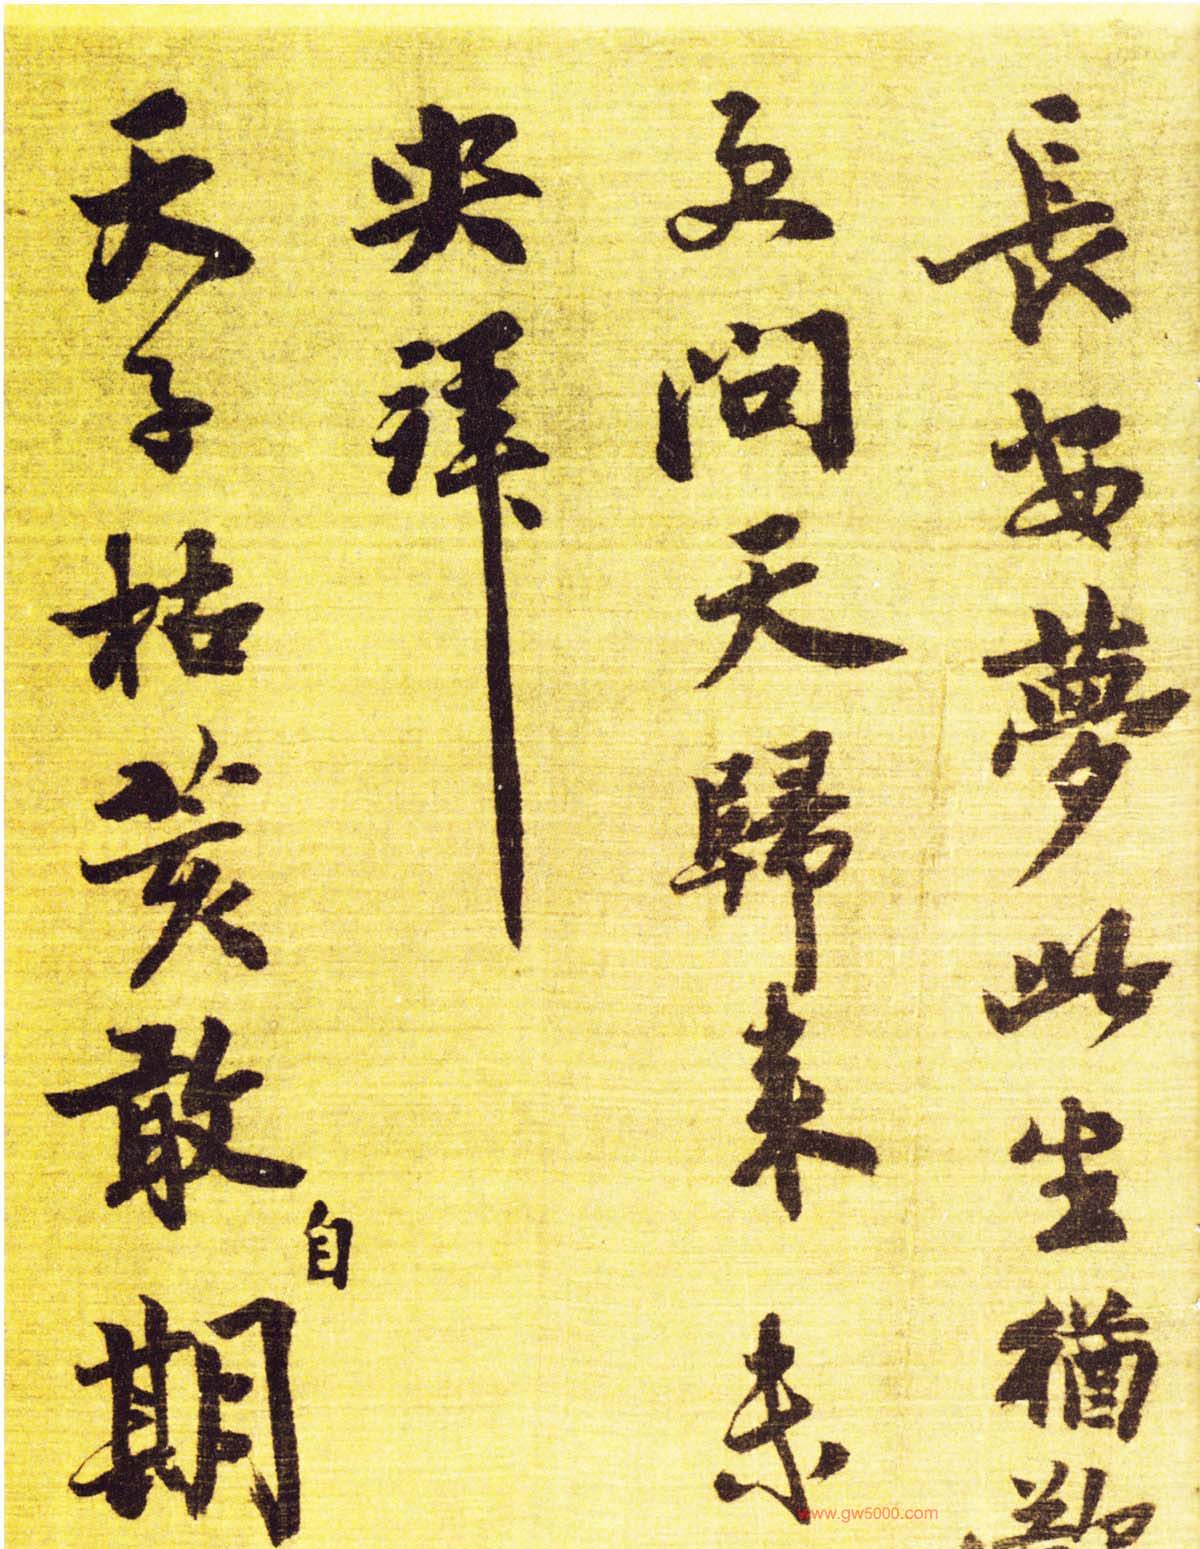 長安夢此生猶
更問天歸來未
央拜
天子枯荄敢自期
www.gw5000.com